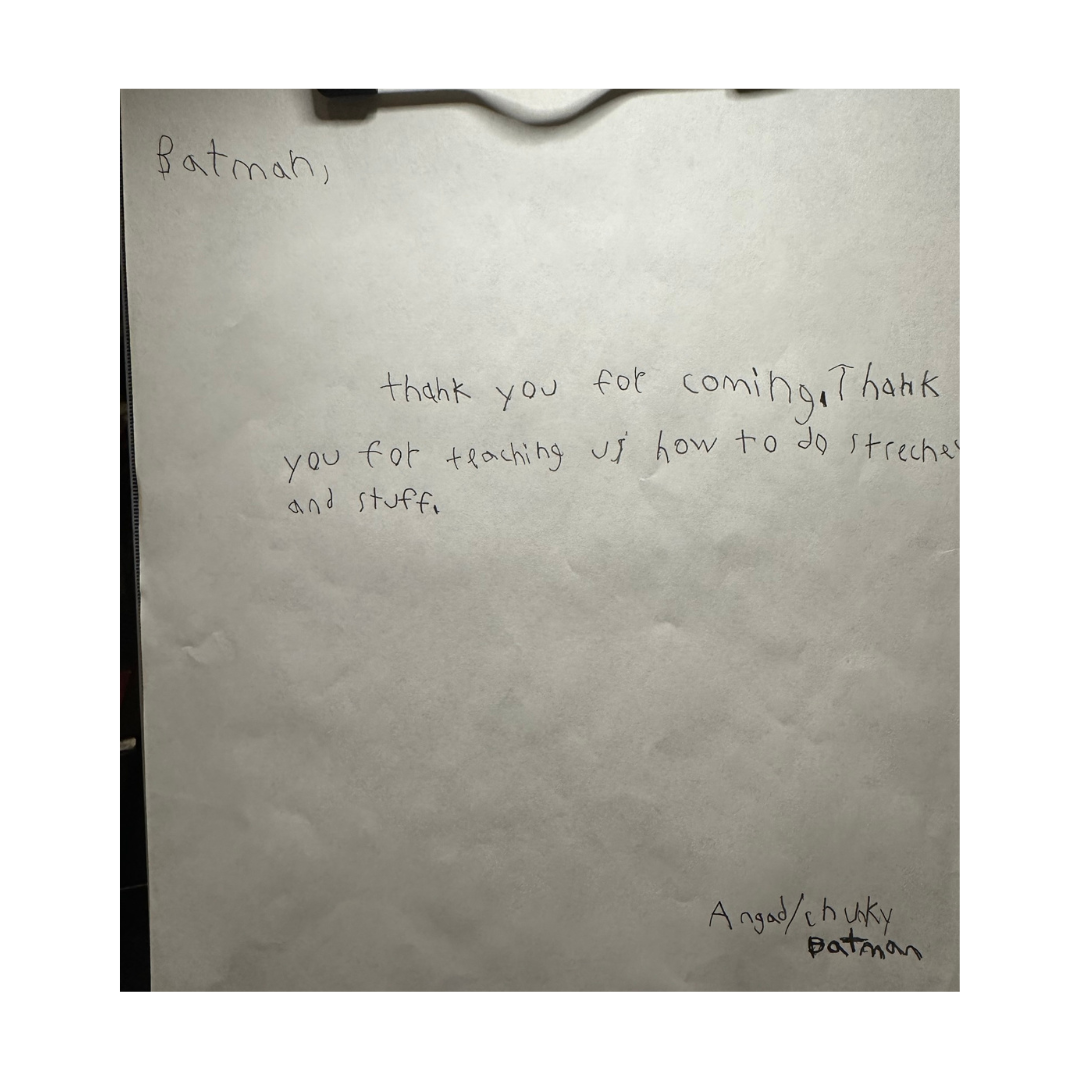 Batman,
thank you for coming. Thank
you for teaching us how to do streches
and stuff.
Angad/chunky
Batman